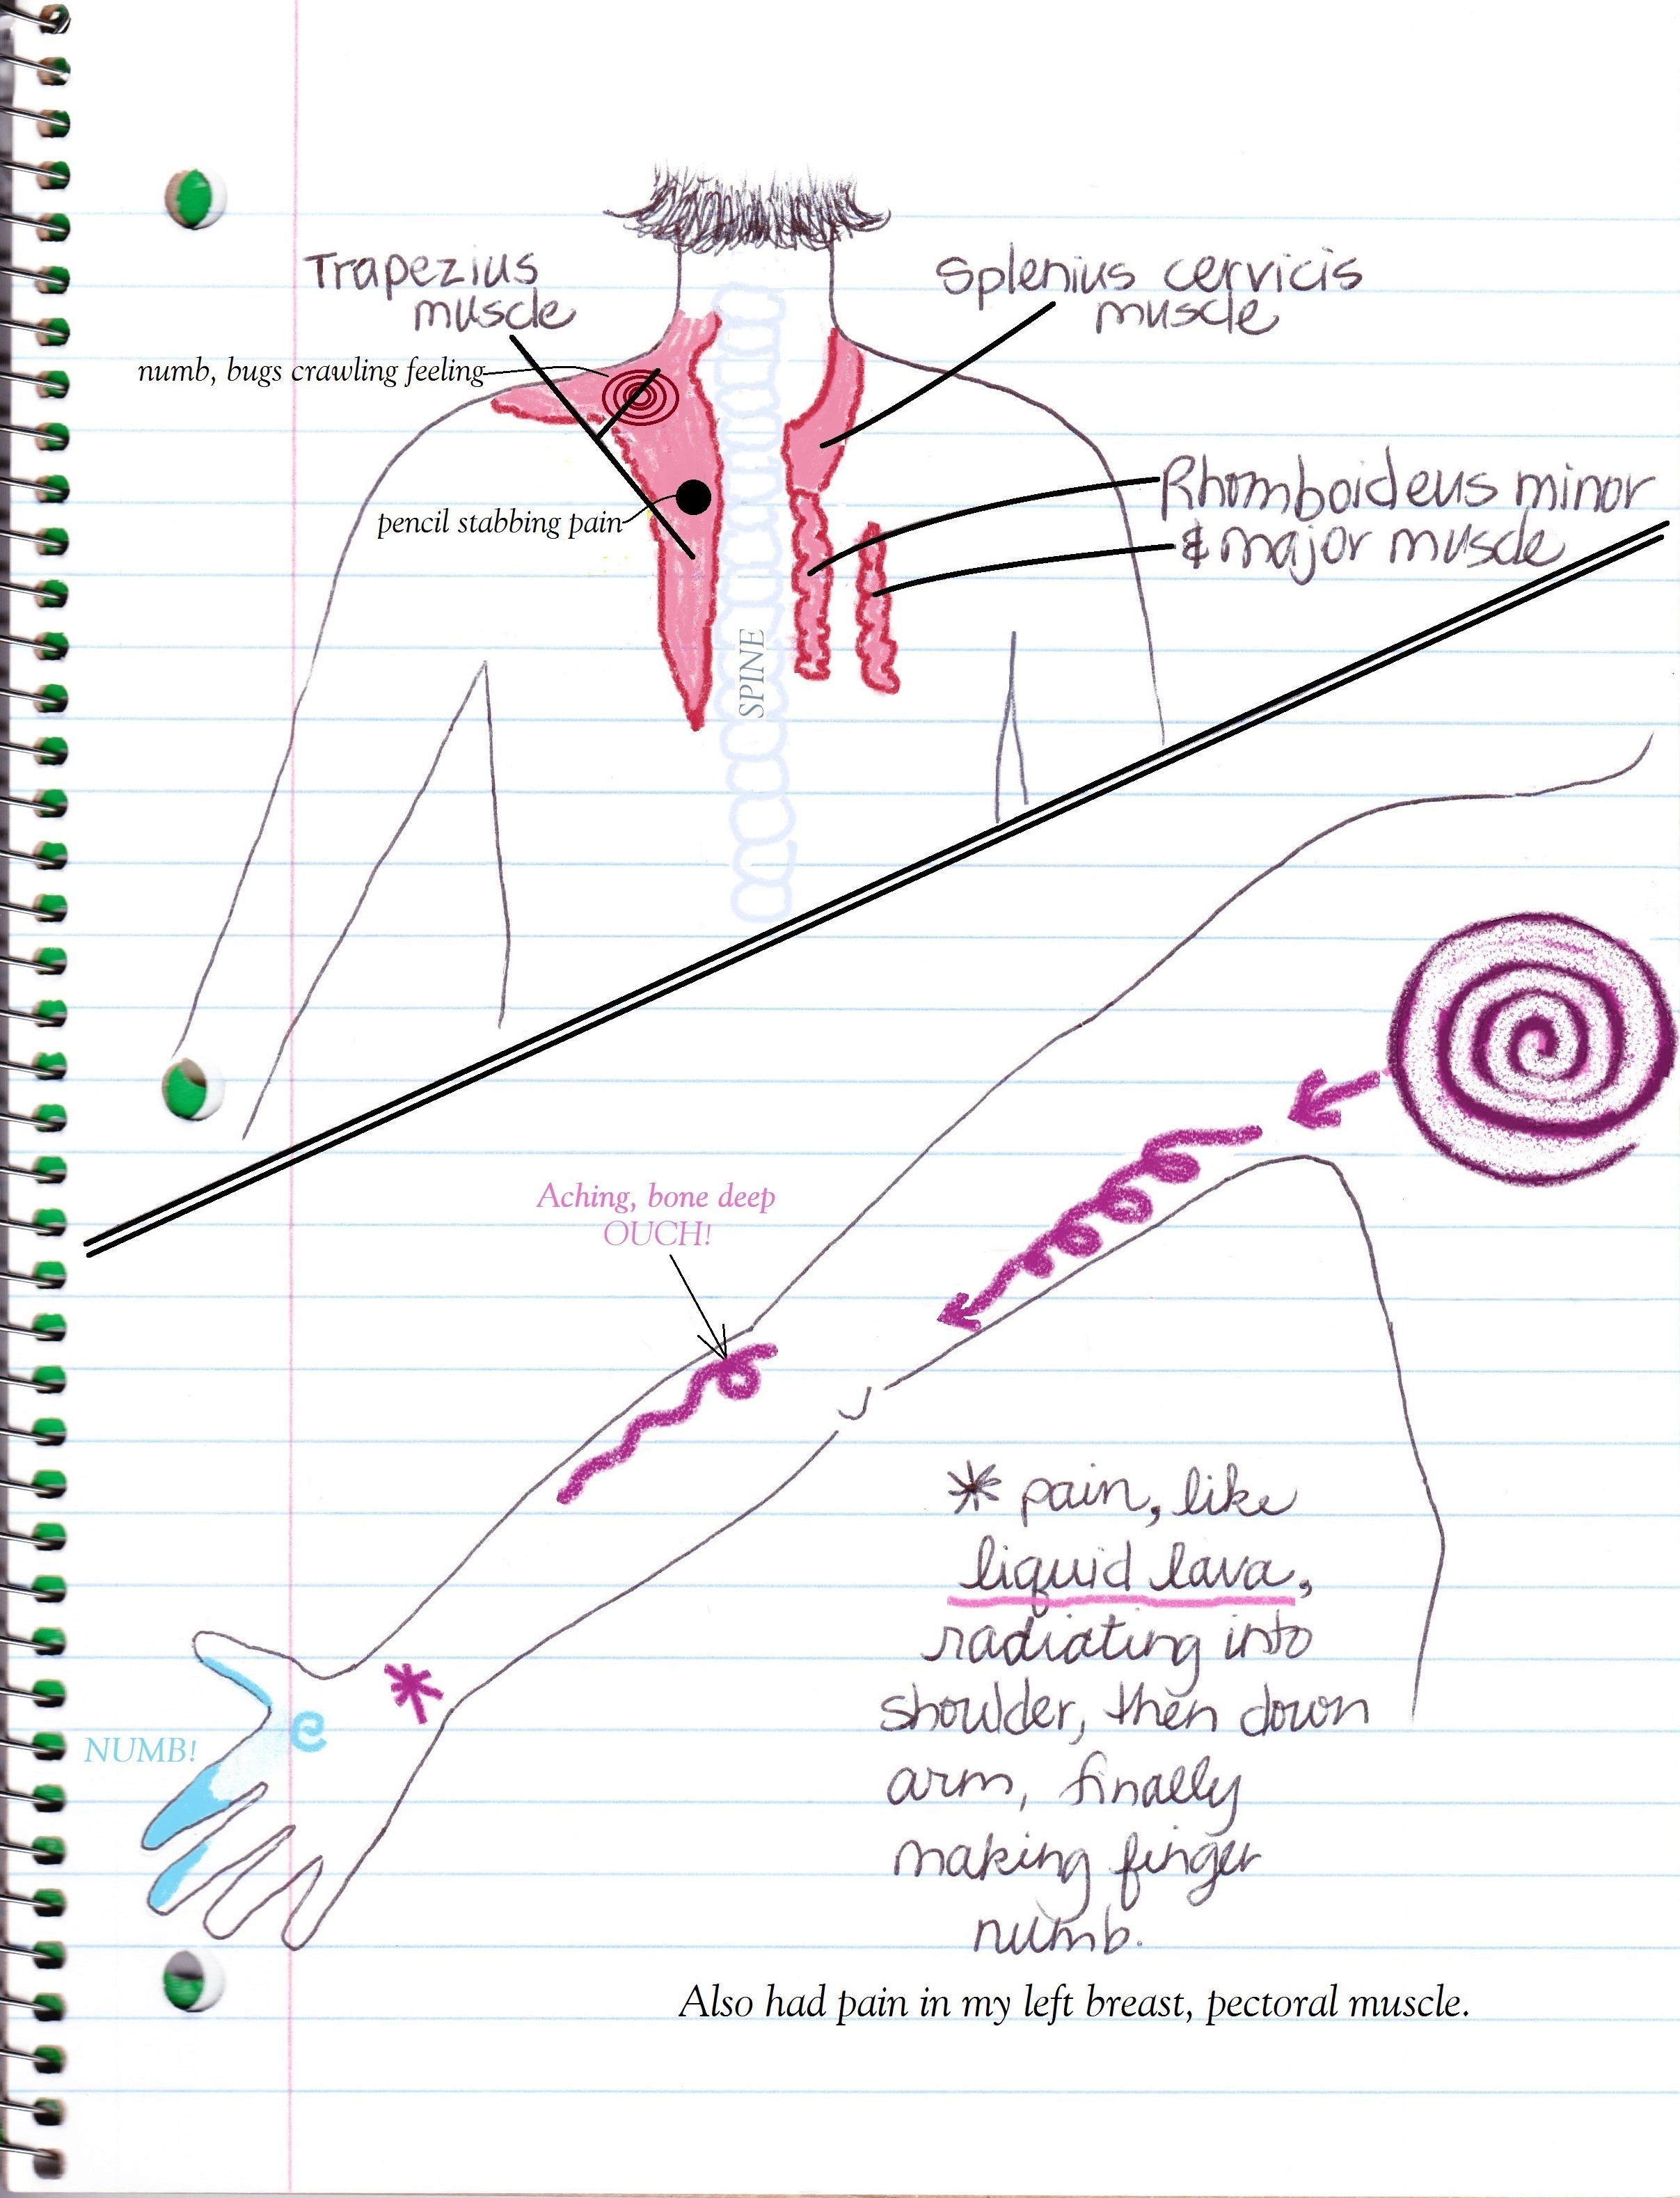 Trapezius
muscle
Splenius cervicis
muscle
numb, bugs crawling feeling
Rhomboideus minor
& major muscle
pencil stabbing pain
SPINE
Aching, bone deep
OUCH!
* pain, like
liquid lava,
radiating into
shoulder, then down
arm, finally
making finger
numb.
NUMB!
Also had pain in my left breast, pectoral muscle.